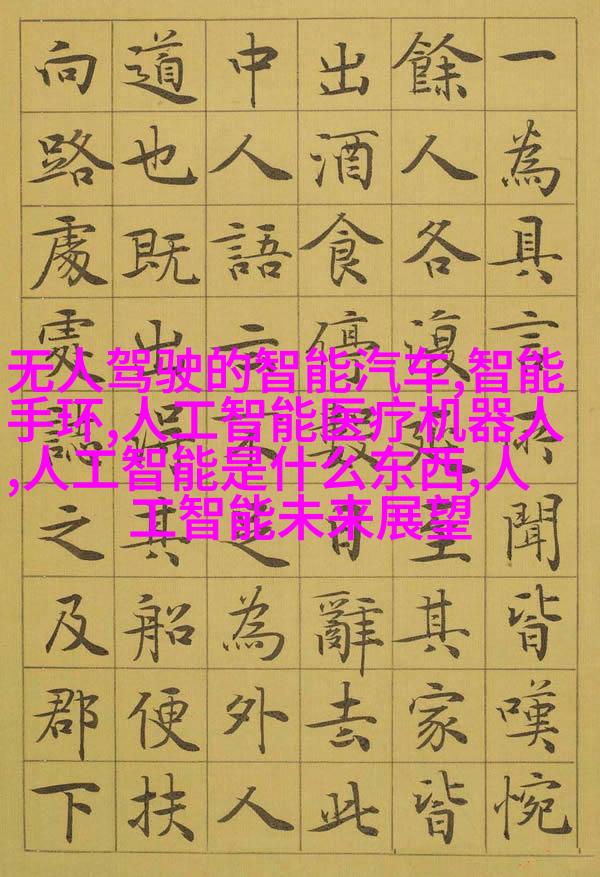 无人驾驶的智能汽车,智能
手环,人工智能医疗机器人
,人工智能是什么东西,人
工智能未来展望
一為具言所聞皆嘆惋
餘人各復延至其家皆
出酒食停數日辭去此
中人語云不足為外人
道也既出得其船便扶
向路處處誌之及郡下